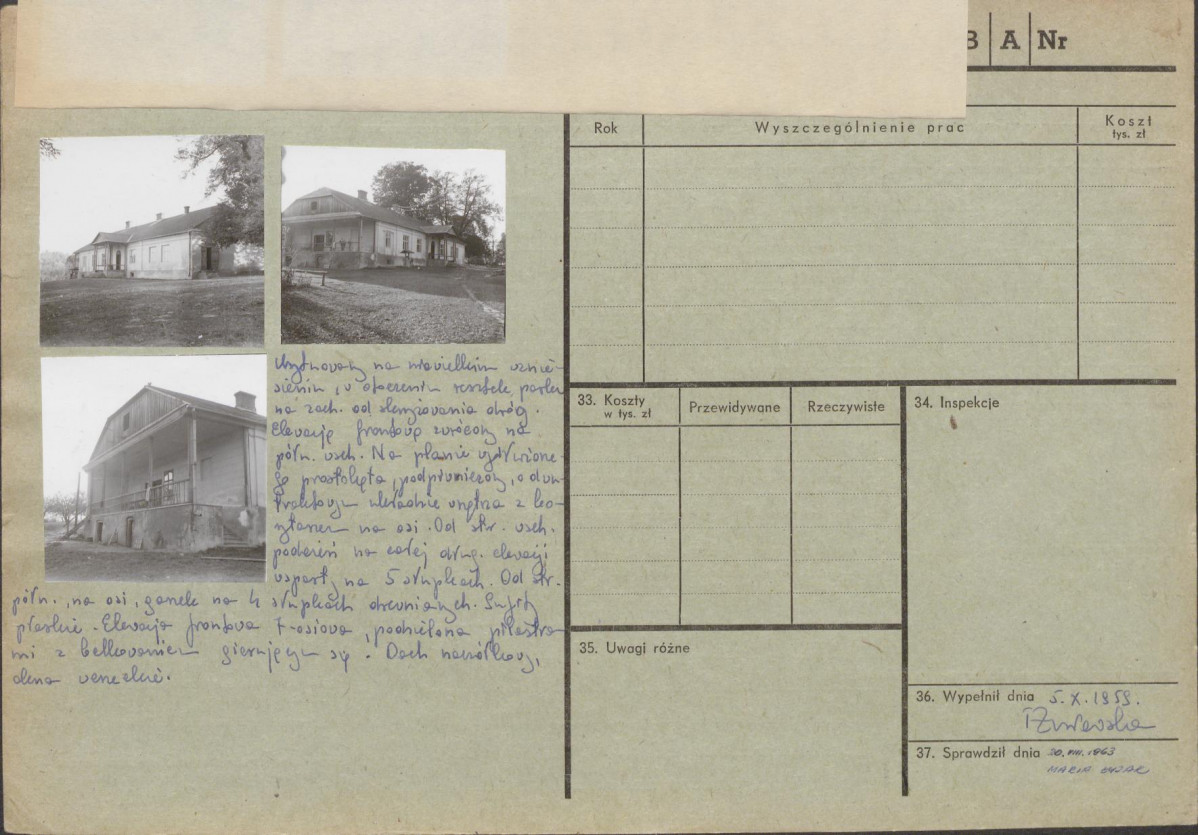 B A Nr
Rok Wyszczególnienie prac Koszt
tys. zł
Usytuowany na niewielkim wznie-
sieniu, w otoczeniu resztek parku
na zach. od skrzyżowania dróg.
Elewacją frontową zwrócony na
półn. wsch. Na planie wydłużone-
go prostokąta, podpiwniczony, o dwu-
traktowym układzie wnętrza z
na osi. Od str. wsch.
podcień na całej dług. elewacji
wsparty na 5 słupkach. Od str.
półn., na osi, ganek na 4 słupkach drewnianych. Sufity
płaskie. Elewacja frontowa 7-osiowa, podzielona pilastra-
mi z belkowaniem gierującym się. Dach naczółkowy,
okna weneckie.
33. Koszty
w tys. zł
Przewidywane
Rzeczywiste
34. Inspekcje
35. Uwagi różne
36. Wypełnił dnia 5.X.1959.
37. Sprawdził dnia 30.VIII.1963
MARIA